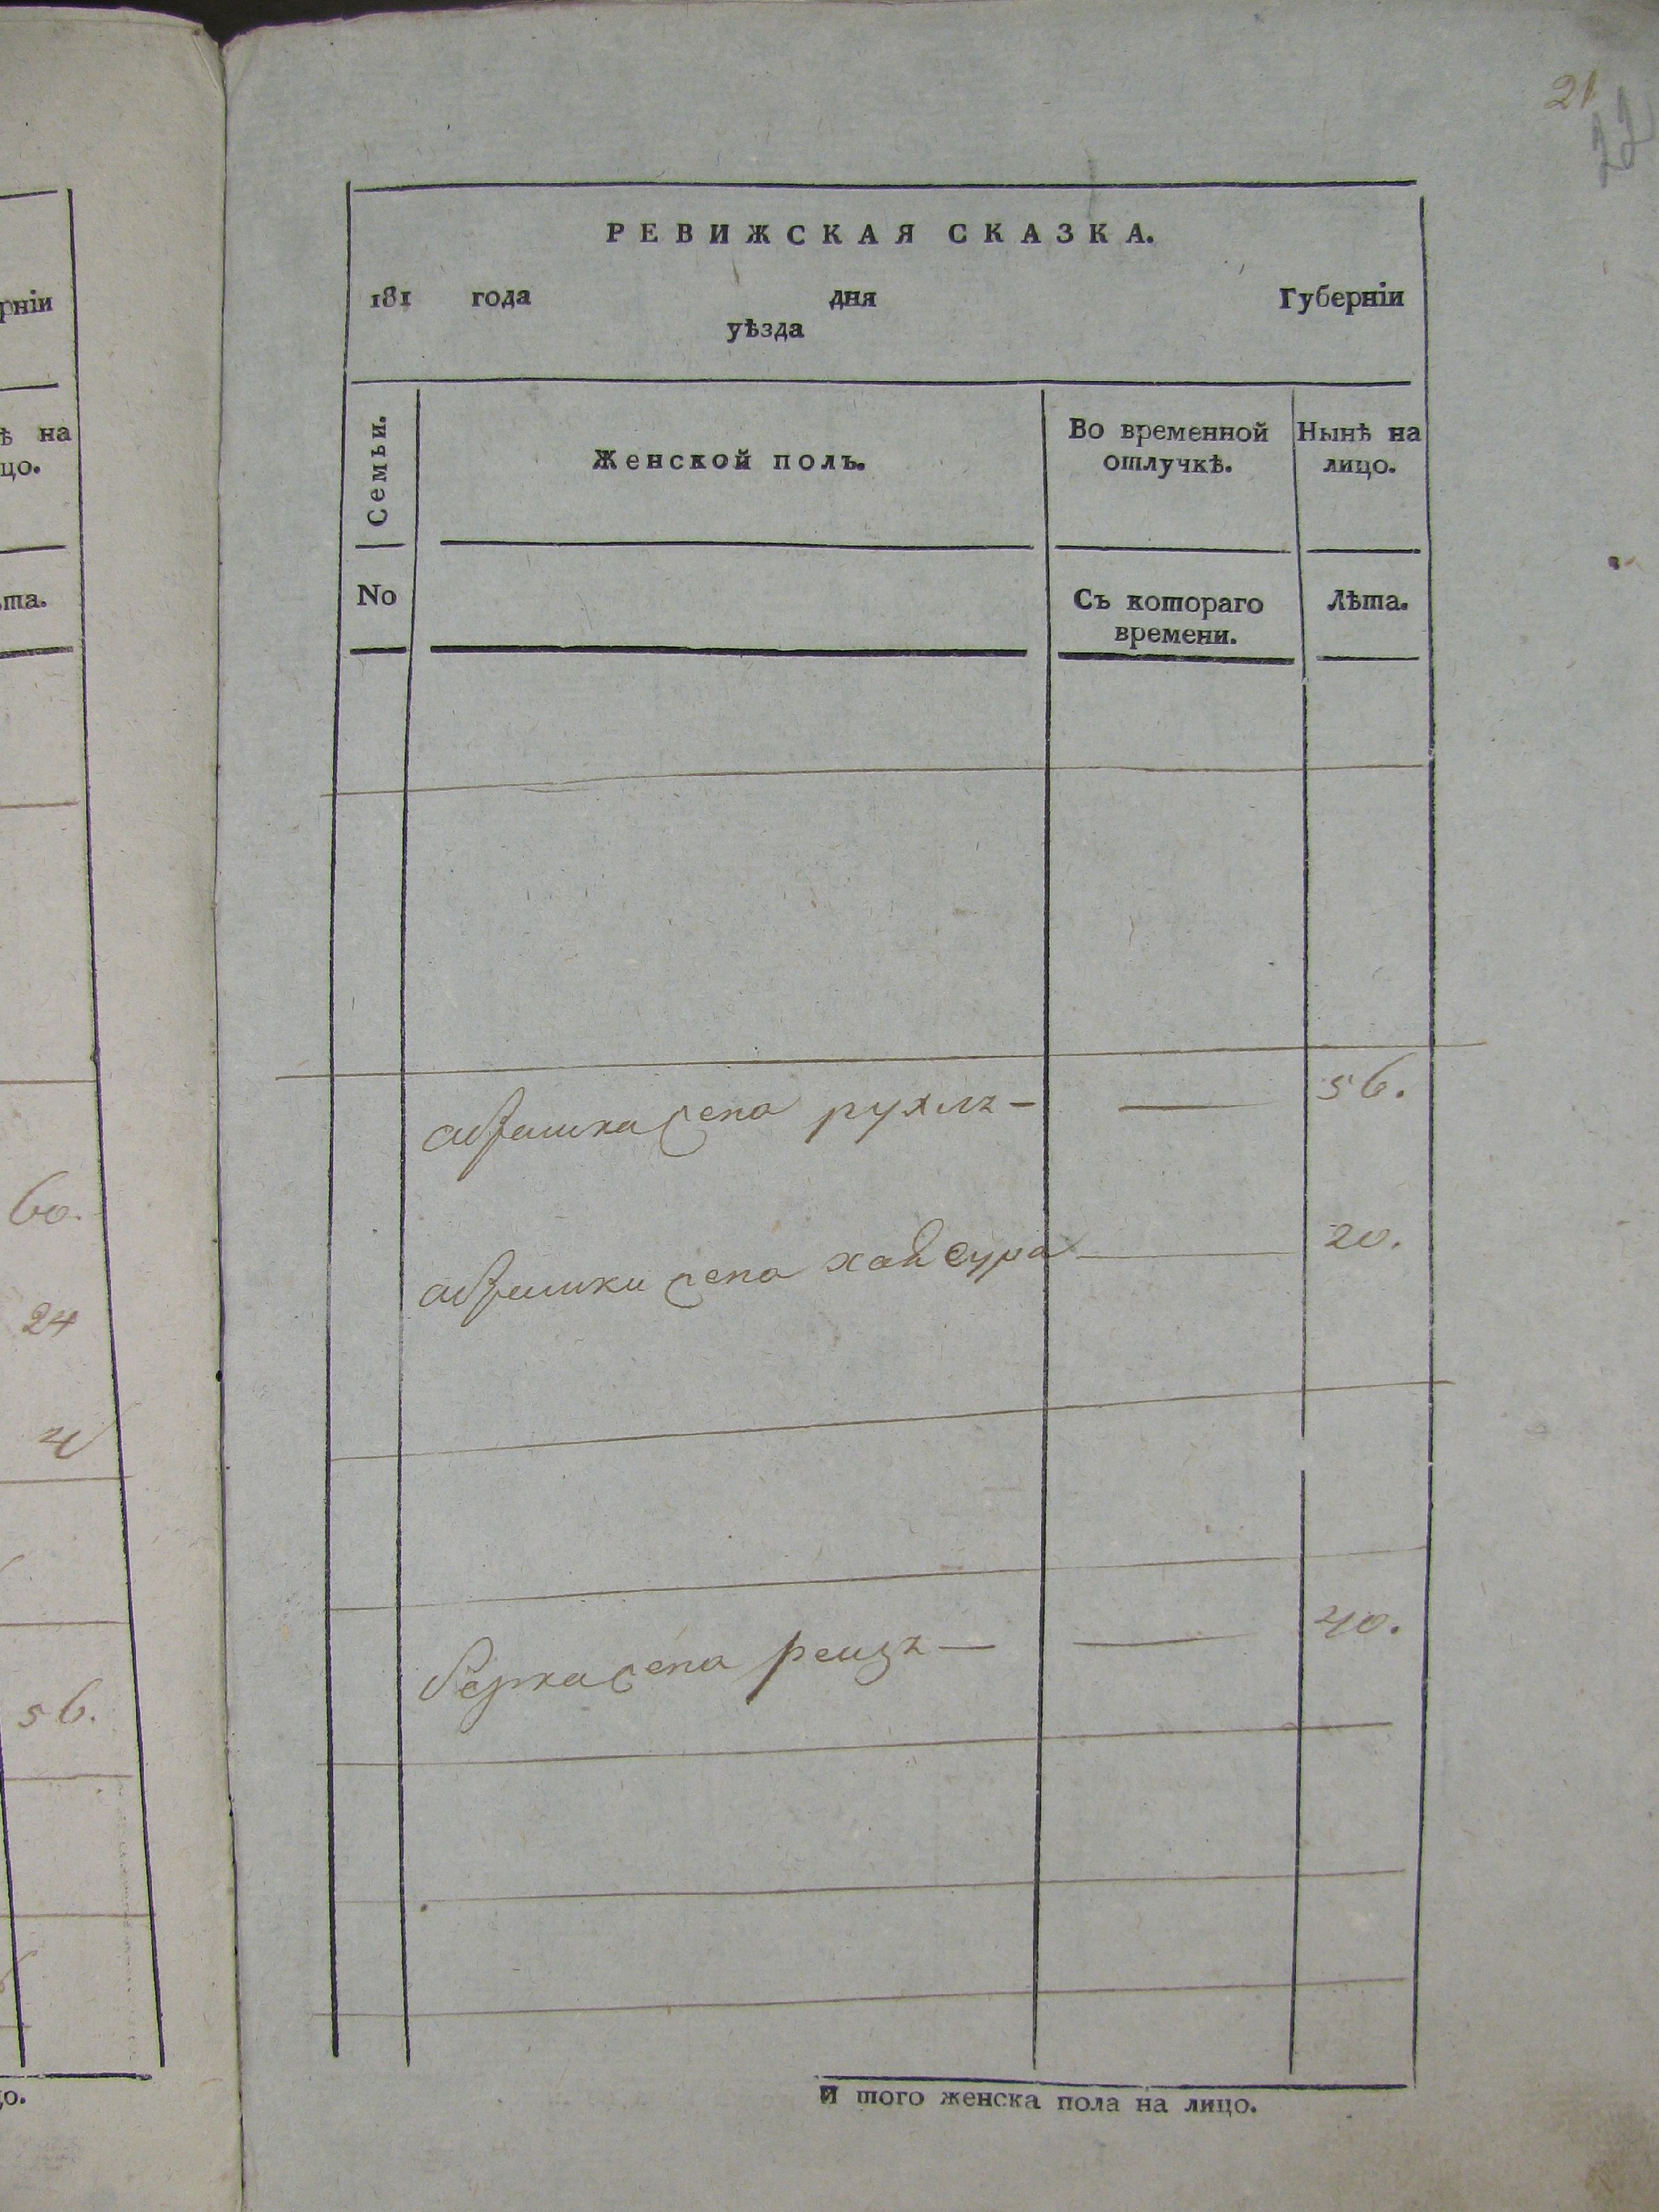 рніи
ѣ на
цо.
ѣта.
60.
24
4
56.
до.
21
22
РЕВИЖСКАЯ СКАЗКА.
181 года дня Губерніи
уѣзда
Семьи. Женской полъ. Во временной отлучкѣ. Нынѣ на лицо.
No Съ котораго времени. Лѣта.
абрашка жена рухлъ — — 56.
абрашки жена хайсура — 20.
берка жена реизъ — — 40.
И того женска пола на лицо.